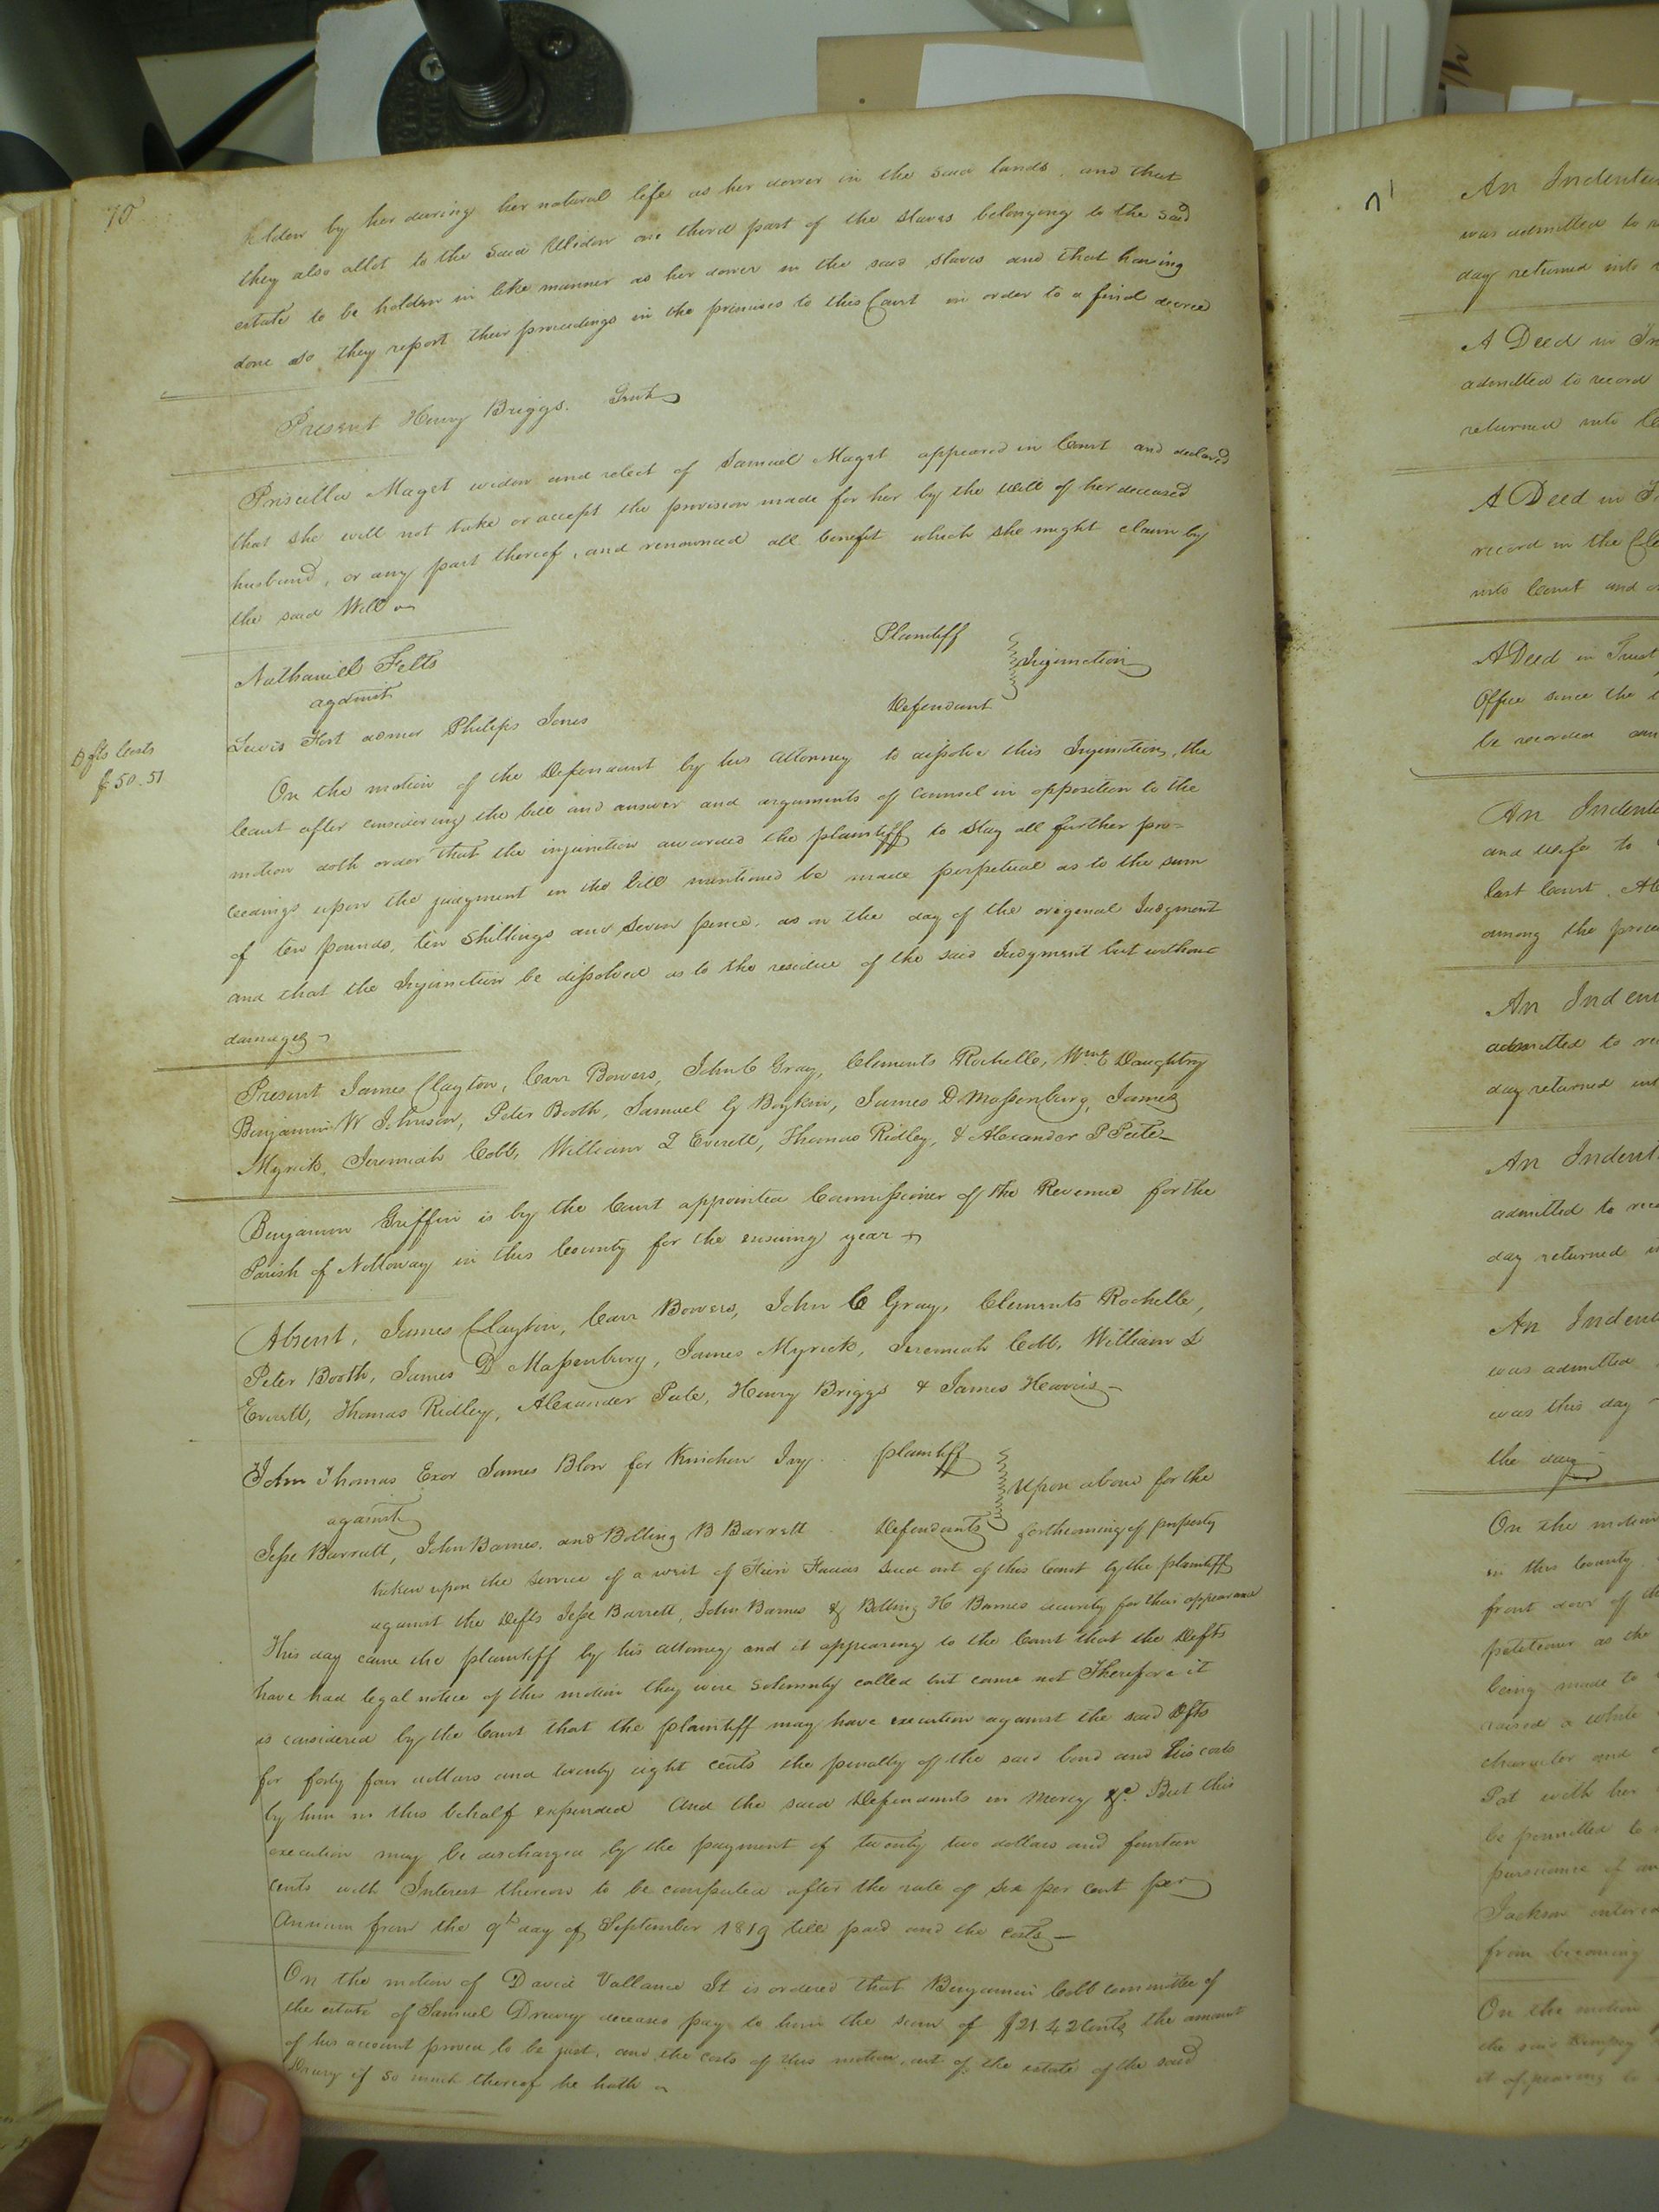 70
holden by her during her natural life as her dower in the said lands, and that
they also allot to the said Widow one third part of the slaves belonging to the said
estate to be holden in like manner as her dower in the said slaves and that having
done so they report their proceedings in the premises to this Court in order to a final decree
Present Henry Briggs. Gent
Priscilla Maget widow and relict of Samuel Maget appeared in Court and declared
that she will not take or accept the provision made for her by the Will of her deceased
husband, or any part thereof, and renounced all benefit which she might claim by
the said Will
Nathaniel Felts Plaintiff
against Injunction
Lewis Fort admor Philips Jones Defendant
Dfts Costs
$50.51
On the motion of the Defendant by his Attorney to dissolve this Injunction, the
Court after considering the bill and answer and arguments of Counsel in opposition to the
motion doth order that the injunction awarded the plaintiff to stay all further pro=
ceedings upon the judgment in the bill mentioned be made perpetual as to the sum
of ten pounds, ten shillings and seven pence, as on the day of the original Judgment
and that the Injunction be dissolved as to the residue of the said Judgment but without
damages
Present James Clayton, Carr Bowers, John C Gray, Clements Rochelle, Wm E Daughtry
Benjamin W Johnson, Peter Booth, Samuel G Boykin, James D Massenburg, James
Myrick, Jeremiah Cobb, William D Everett, Thomas Ridley, & Alexander P Peete
Benjamin Griffin is by the Court appointed Commissioner of the Revenue for the
Parish of Nottoway in this County for the ensuing year
Absent, James Clayton, Carr Bowers, John C Gray, Clements Rochelle,
Peter Booth, James D Massenburg, James Myrick, Jeremiah Cobb, William D
Everett, Thomas Ridley, Alexander Pete, Henry Briggs & James Harris
John Thomas Exor James Blow for Kinchen Ivy plaintiff
against Upon a bond for the
Jesse Barrett, John Barnes, and Bolling B Barrett Defendants forthcoming of property
taken upon the service of a writ of Fieri Facias sued out of this Court by the plaintiff
against the Defts Jesse Barrett, John Barnes & Bolling H Barnes security for their appearance
This day came the plaintiff by his attorney and it appearing to the Court that the Defts
have had legal notice of this motion they were solemnly called but came not Therefore it
is considered by the Court that the plaintiff may have execution against the said Dfts
for forty four dollars and twenty eight cents the penalty of the said bond and his costs
by him in this behalf expended And the said Defendants in Mercy &c. But this
execution may be discharged by the payment of twenty two dollars and fourteen
cents with Interest thereon to be computed after the rate of six per cent per
Annum from the 9th day of September 1819 till paid and the costs
On the motion of David Vallance It is ordered that Benjamin Cobb Committee of
the estate of Samuel Drewry deceased pay to him the sum of $21.42 Cents the amount
of his account proved to be just, and the costs of this motion, out of the estate of the said
Drewry if so much thereof he hath
An Indentu
was admitted to
day returned into
A Deed in
admitted to record
returned into
A Deed in
record in the
into Court and
A Deed in Trust
Office since the
be recorded
An Indent
and Wife to
last Court
among the
An Inden
admitted to
day returned
An Indent
admitted to
day returned
An Indent
was admitted
was this day
the day
On the motion
in this County
front door of
petitioner as the
being made to
raised a white
character and
Pat with her
be permitted to
pursuance of an
Jackson
from becoming
On the motion
the said
it appearing to